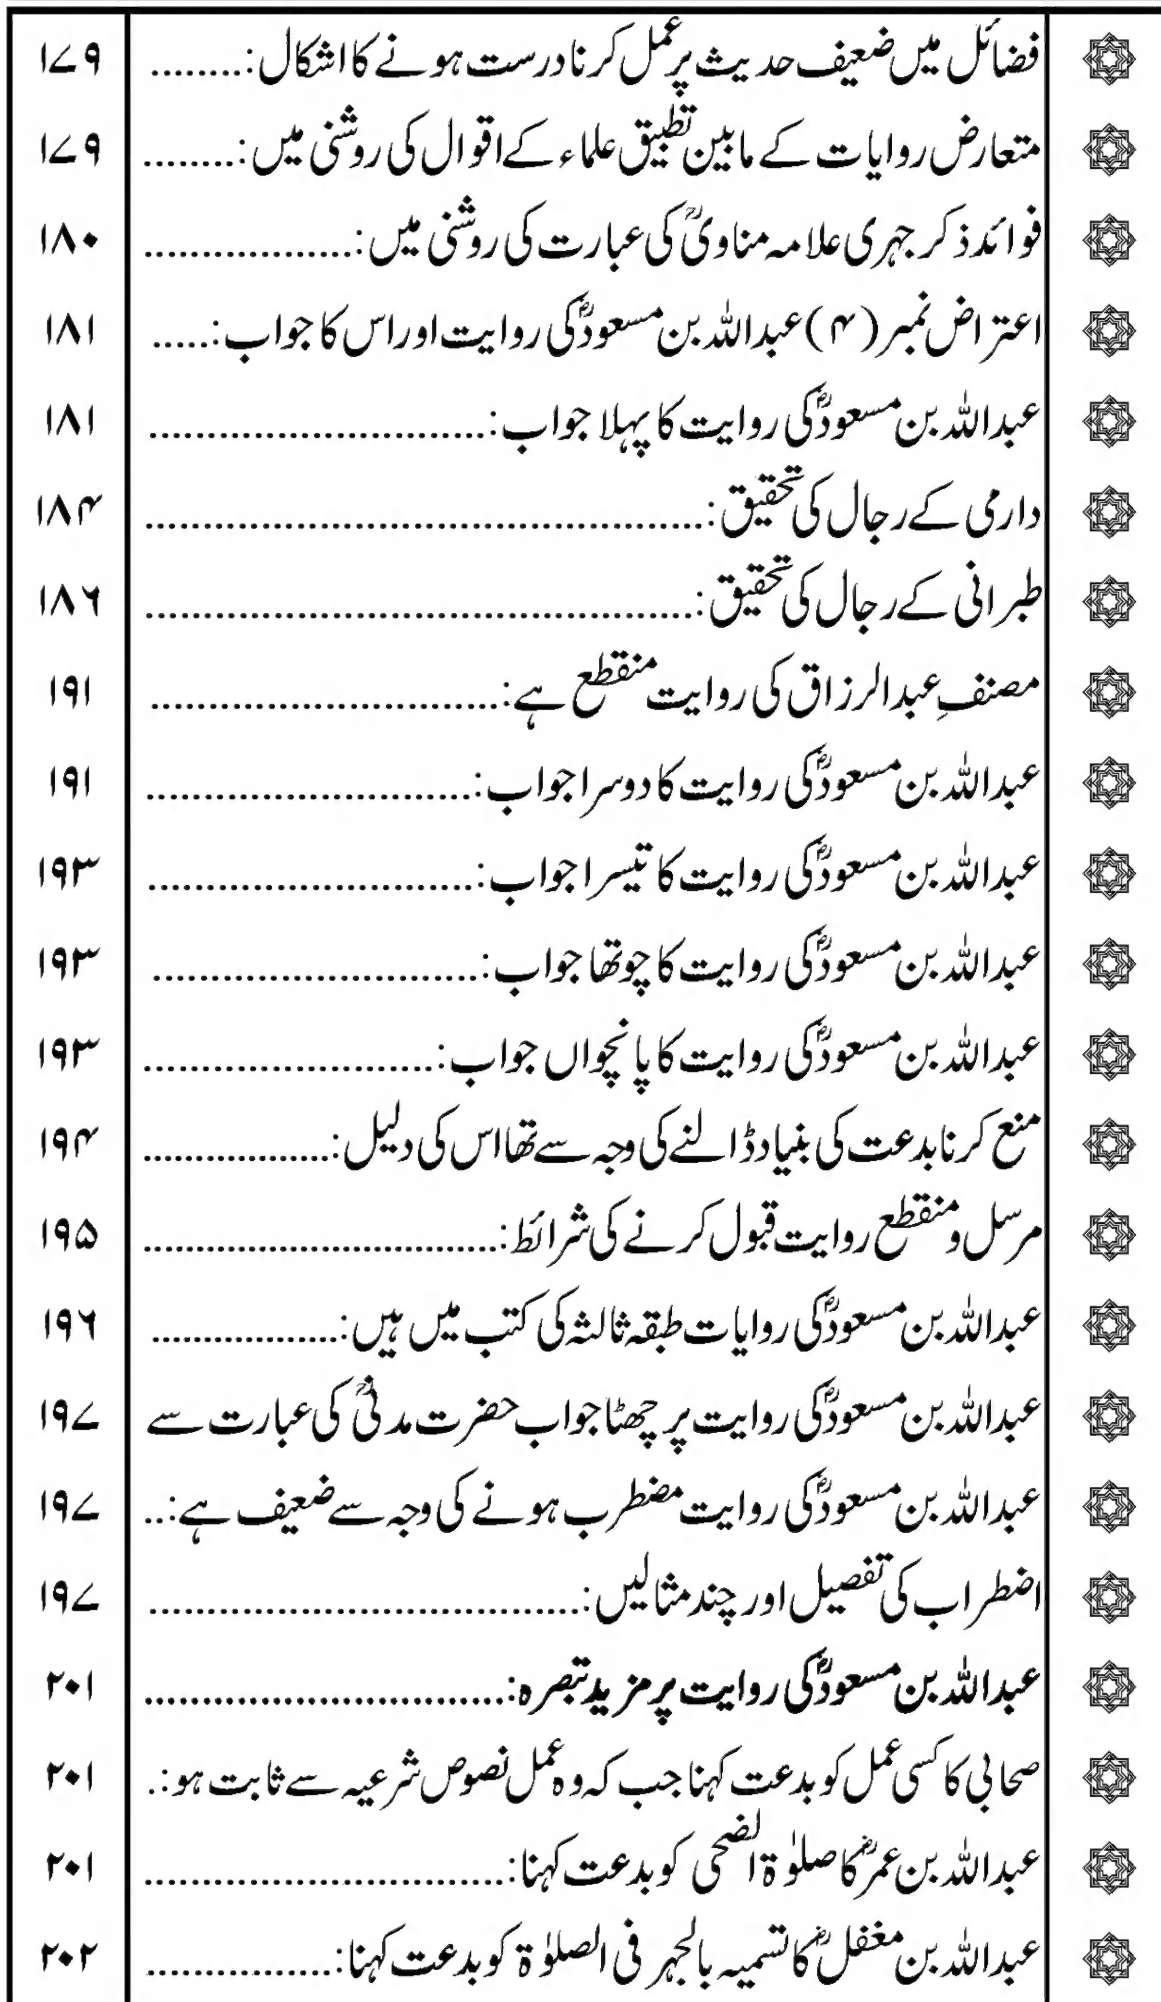 فضائل میں ضعیف حدیث پر عمل کرنا درست ہونے کا اشکال:......... ۱۷۹
متعارض روایات کے مابین تطبیق علماء کے اقوال کی روشنی میں:......... ۱۷۹
فوائد ذکر جہری علامہ مناویؒ کی عبارت کی روشنی میں:................... ۱۸۰
اعتراض نمبر (۴) عبداللہ بن مسعودؓ کی روایت اور اس کا جواب:..... ۱۸۱
عبداللہ بن مسعودؓ کی روایت کا پہلا جواب:.............................. ۱۸۱
دارمی کے رجال کی تحقیق:................................................ ۱۸۴
طبرانی کے رجال کی تحقیق:............................................... ۱۸۶
مصنفِ عبدالرزاق کی روایت منقطع ہے:.............................. ۱۹۱
عبداللہ بن مسعودؓ کی روایت کا دوسرا جواب:............................ ۱۹۱
عبداللہ بن مسعودؓ کی روایت کا تیسرا جواب:............................ ۱۹۳
عبداللہ بن مسعودؓ کی روایت کا چوتھا جواب:............................ ۱۹۳
عبداللہ بن مسعودؓ کی روایت کا پانچواں جواب:......................... ۱۹۳
منع کرنا بدعت کی بنیاد ڈالنے کی وجہ سے تھا اس کی دلیل:................. ۱۹۴
مرسل و منقطع روایت قبول کرنے کی شرائط:............................... ۱۹۵
عبداللہ بن مسعودؓ کی روایات طبقہ ثالثہ کی کتب میں ہیں:................ ۱۹۶
عبداللہ بن مسعودؓ کی روایت پر چھٹا جواب حضرت مدنیؒ کی عبارت سے ۱۹۷
عبداللہ بن مسعودؓ کی روایت مضطرب ہونے کی وجہ سے ضعیف ہے:.. ۱۹۷
اضطراب کی تفصیل اور چند مثالیں:..................................... ۱۹۷
عبداللہ بن مسعودؓ کی روایت پر مزید تبصرہ:............................... ۲۰۱
صحابی کا کسی عمل کو بدعت کہنا جب کہ وہ عمل نصوص شرعیہ سے ثابت ہو:. ۲۰۱
عبداللہ بن عمرؓ کا صلوٰۃ الضحی کو بدعت کہنا:............................... ۲۰۱
عبداللہ بن مغفلؓ کا تسمیہ بالجہر فی الصلوٰۃ کو بدعت کہنا:................ ۲۰۲